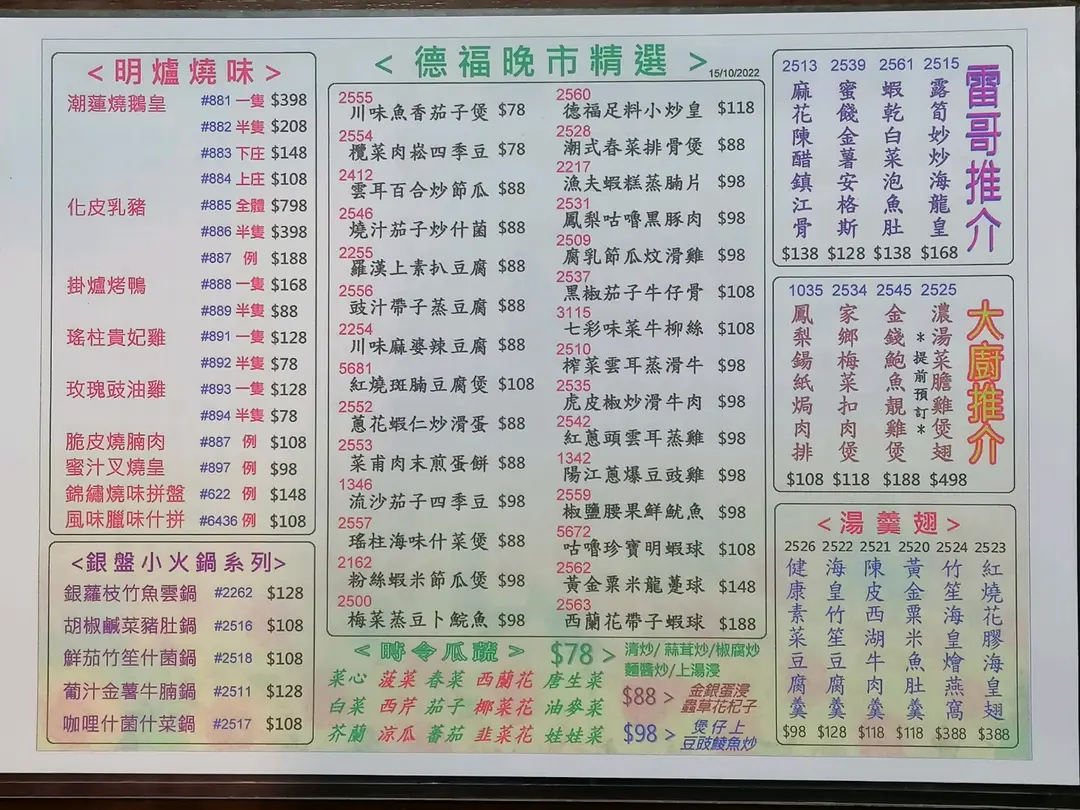 <明爐燒味>
潮蓮燒鵝皇 #881 一隻 $398
#882 半隻 $208
#883 下庄 $148
#884 上庄 $108
化皮乳豬 #885 全體 $798
#886 半隻 $398
#887 例 $188
掛爐烤鴨 #888 一隻 $168
#889 半隻 $88
瑤柱貴妃雞 #891 一隻 $128
#892 半隻 $78
玫瑰豉油雞 #893 一隻 $128
#894 半隻 $78
脆皮燒腩肉 #887 例 $108
蜜汁叉燒皇 #897 例 $98
錦繡燒味拼盤 #622 例 $148
風味臘味什拼 #6436 例 $108
<銀盤小火鍋系列>
銀蘿枝竹魚雲鍋 #2262 $128
胡椒鹹菜豬肚鍋 #2516 $108
鮮茄竹笙什菌鍋 #2518 $108
葡汁金薯牛腩鍋 #2511 $128
咖哩什菌什菜鍋 #2517 $108
<德福晚市精選>
15/10/2022
2555
川味魚香茄子煲 $78
2554
欖菜肉崧四季豆 $78
2412
雲耳百合炒節瓜 $88
2546
燒汁茄子炒什菌 $88
2255
羅漢上素扒豆腐 $88
2556
豉汁帶子蒸豆腐 $88
2254
川味麻婆辣豆腐 $88
5681
紅燒斑腩豆腐煲 $108
2552
蔥花蝦仁炒滑蛋 $88
2553
菜甫肉末煎蛋餅 $88
1346
流沙茄子四季豆 $98
2557
瑤柱海味什菜煲 $88
2162
粉絲蝦米節瓜煲 $98
2500
梅菜蒸豆卜鯇魚 $98
2560
德福足料小炒皇 $118
2528
潮式春菜排骨煲 $88
2217
漁夫蝦糕蒸腩片 $98
2531
鳳梨咕嚕黑豚肉 $98
2509
腐乳節瓜炆滑雞 $98
2537
黑椒茄子牛仔骨 $108
3115
七彩味菜牛柳絲 $108
2510
榨菜雲耳蒸滑牛 $98
2535
虎皮椒炒滑牛肉 $98
2542
紅蔥頭雲耳蒸雞 $98
1342
陽江蔥爆豆豉雞 $98
2559
椒鹽腰果鮮魷魚 $98
5672
咕嚕珍寶明蝦球 $108
2562
黃金粟米龍躉球 $148
2563
西蘭花帶子蝦球 $188
<時令瓜蔬>
菜心 菠菜 春菜 西蘭花 唐生菜
白菜 西芹 茄子 椰菜花 油麥菜
芥蘭 涼瓜 蕃茄 韭菜花 娃娃菜
$78 > 清炒/ 蒜茸炒/椒腐炒
麵醬炒/上湯浸
$88 > 金銀蛋浸
蟲草花杞子
$98 > 煲仔上
豆豉鯪魚炒
雷哥推介
2513 麻花陳醋鎮江骨 $138
2539 蜜餞金薯安格斯 $128
2561 蝦乾白菜泡魚肚 $138
2515 露筍妙炒海龍皇 $168
大廚推介
1035 鳳梨錫紙焗肉排 $108
2534 家鄉梅菜扣肉煲 $118
2545 金錢鮑魚靚雞煲 $188
2525 濃湯菜膽雞煲翅 $498
*提前預訂*
<湯羹翅>
2526 健康素菜豆腐羹 $98
2522 海皇竹笙豆腐羹 $128
2521 陳皮西湖牛肉羹 $118
2520 黃金粟米魚肚羹 $118
2524 竹笙海皇燴燕窩 $388
2523 紅燒花膠海皇翅 $388